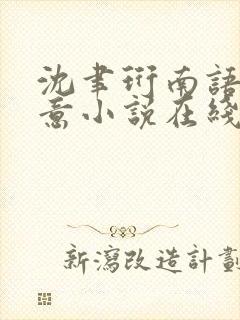 沈聿珩南語
意小說在綫
新瀉改造計劃